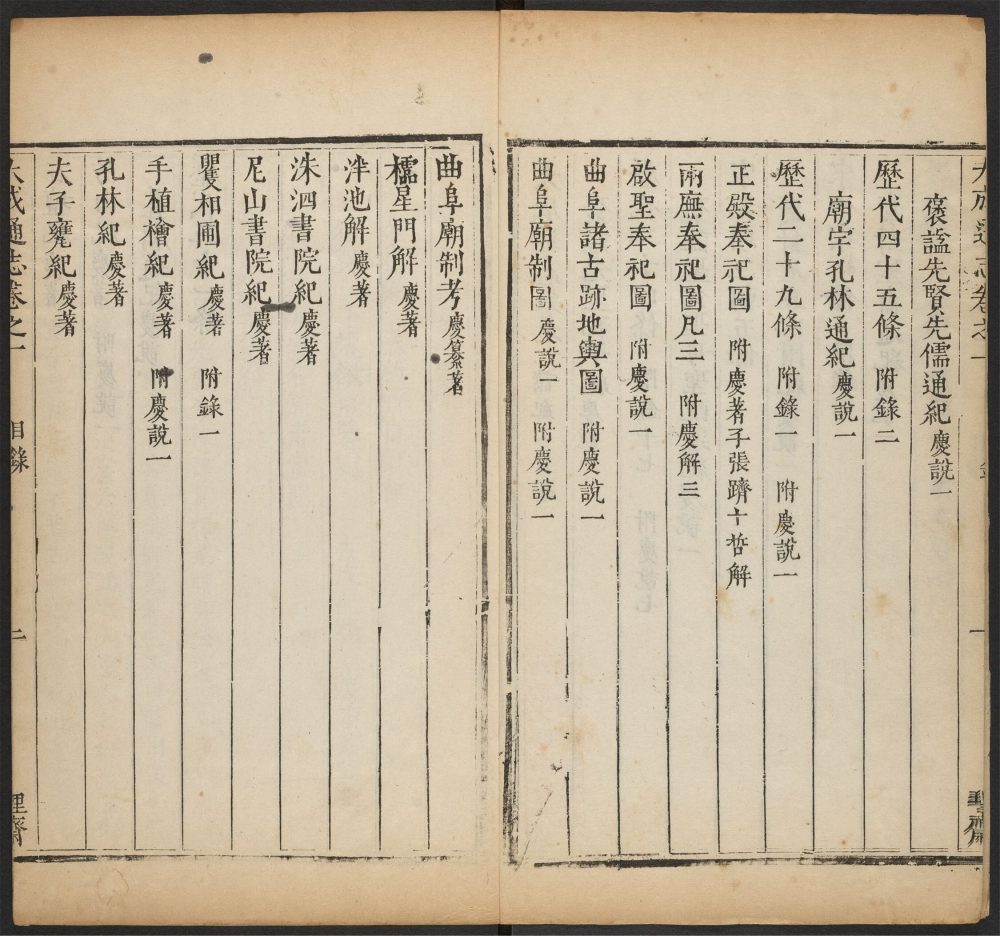 大成通志卷之一
褒諡先賢先儒通紀 慶說一
歷代四十五條 附錄二
廟宇孔林通紀 慶說一
歷代二十九條 附錄一 附慶說一
正殿奉祀圖 附慶著子張躋十哲解
兩廡奉祀圖凡三 附慶解三
啟聖奉祀圖 附慶說一
曲阜諸古跡地輿圖 附慶說一
曲阜廟制圖 慶說一 附慶說一
一
理齋
曲阜廟制考 慶纂著
櫺星門解 慶著
泮池解 慶著
洙泗書院紀 慶著
尼山書院紀 慶著
矍相圃紀 慶著 附錄一
手植檜紀 慶著 附慶說一
孔林紀 慶著
夫子甕紀 慶著
大成通志卷之一 目錄
二
理齋